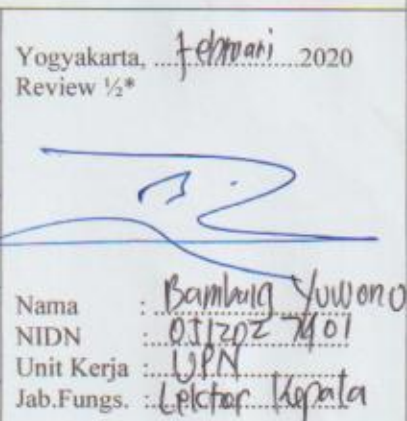 Yogyakarta, Februari 2020
Review ½*
Nama : Bambang Yuwono
NIDN : 0512027401
Unit Kerja : UPN
Jab.Fungs. : Lektor Kepala